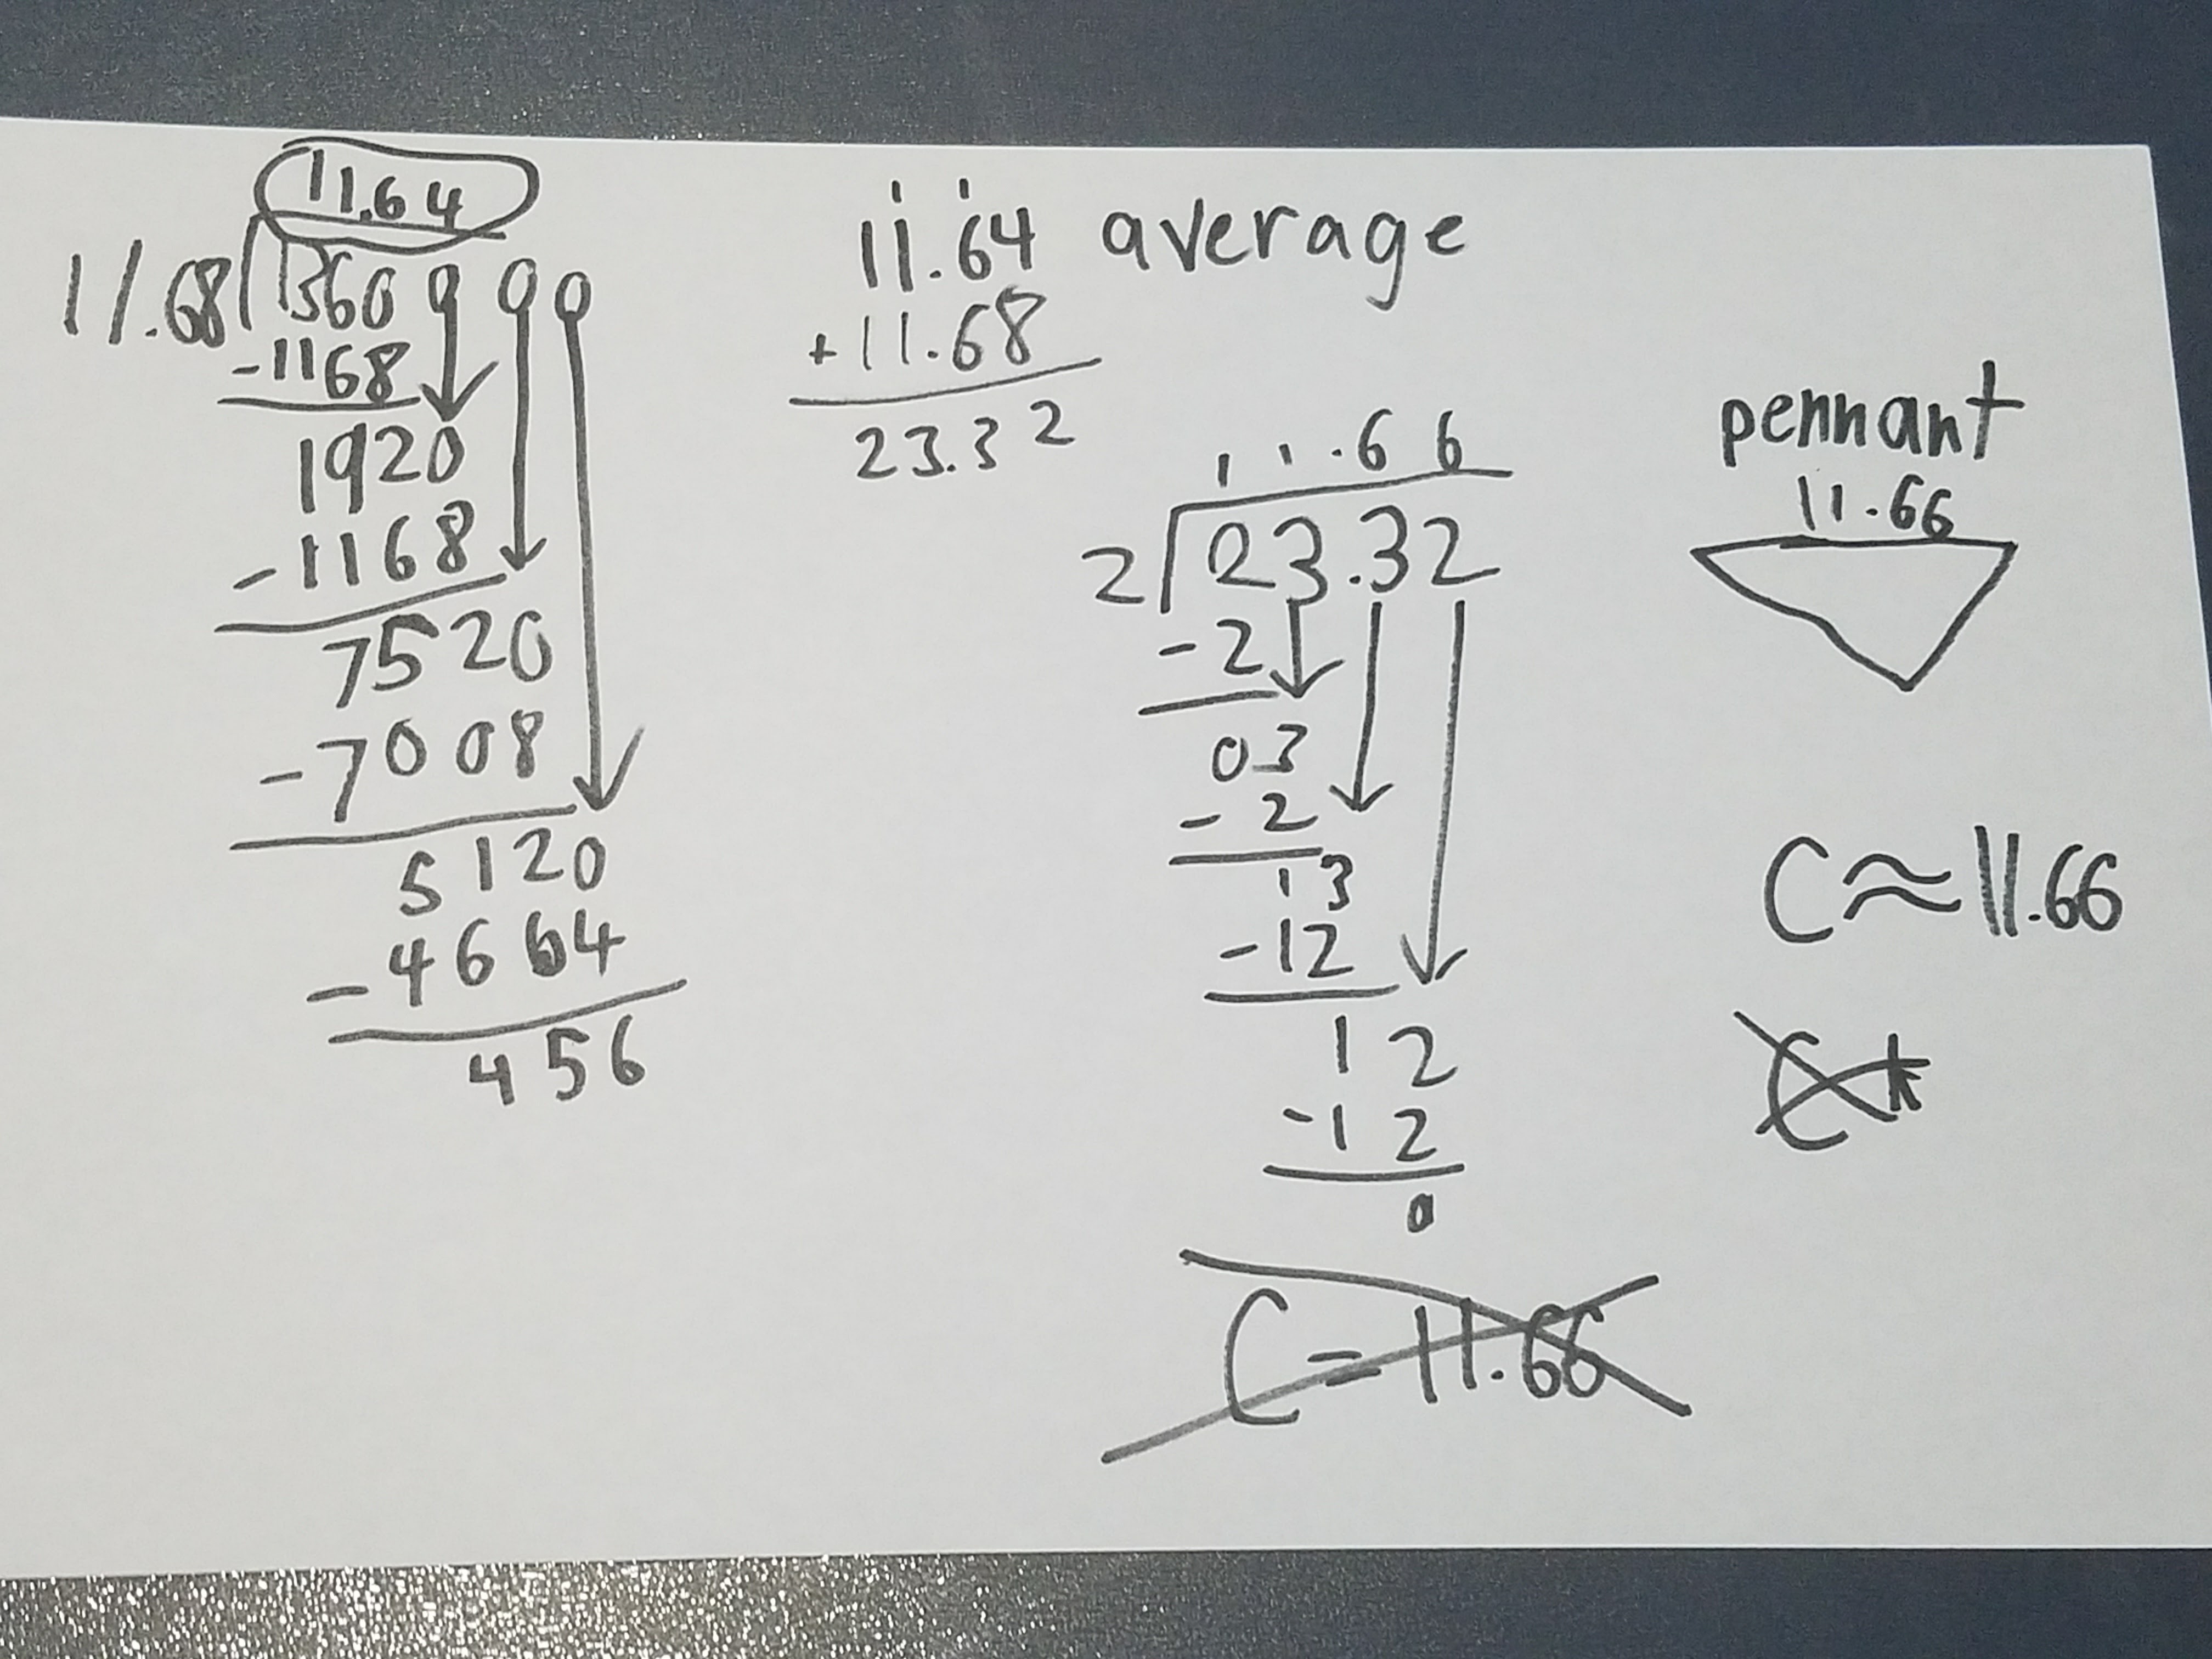 11.64
11.68 1360 0 0 0
-1168
1920
-1168
7520
-7008
5120
-4664
456
1 1
11.64 average
+11.68
23.32
11.66
2 23.32
-2
03
-2
13
-12
12
-12
0
C=11.66
pennant
11.66
C≈11.66